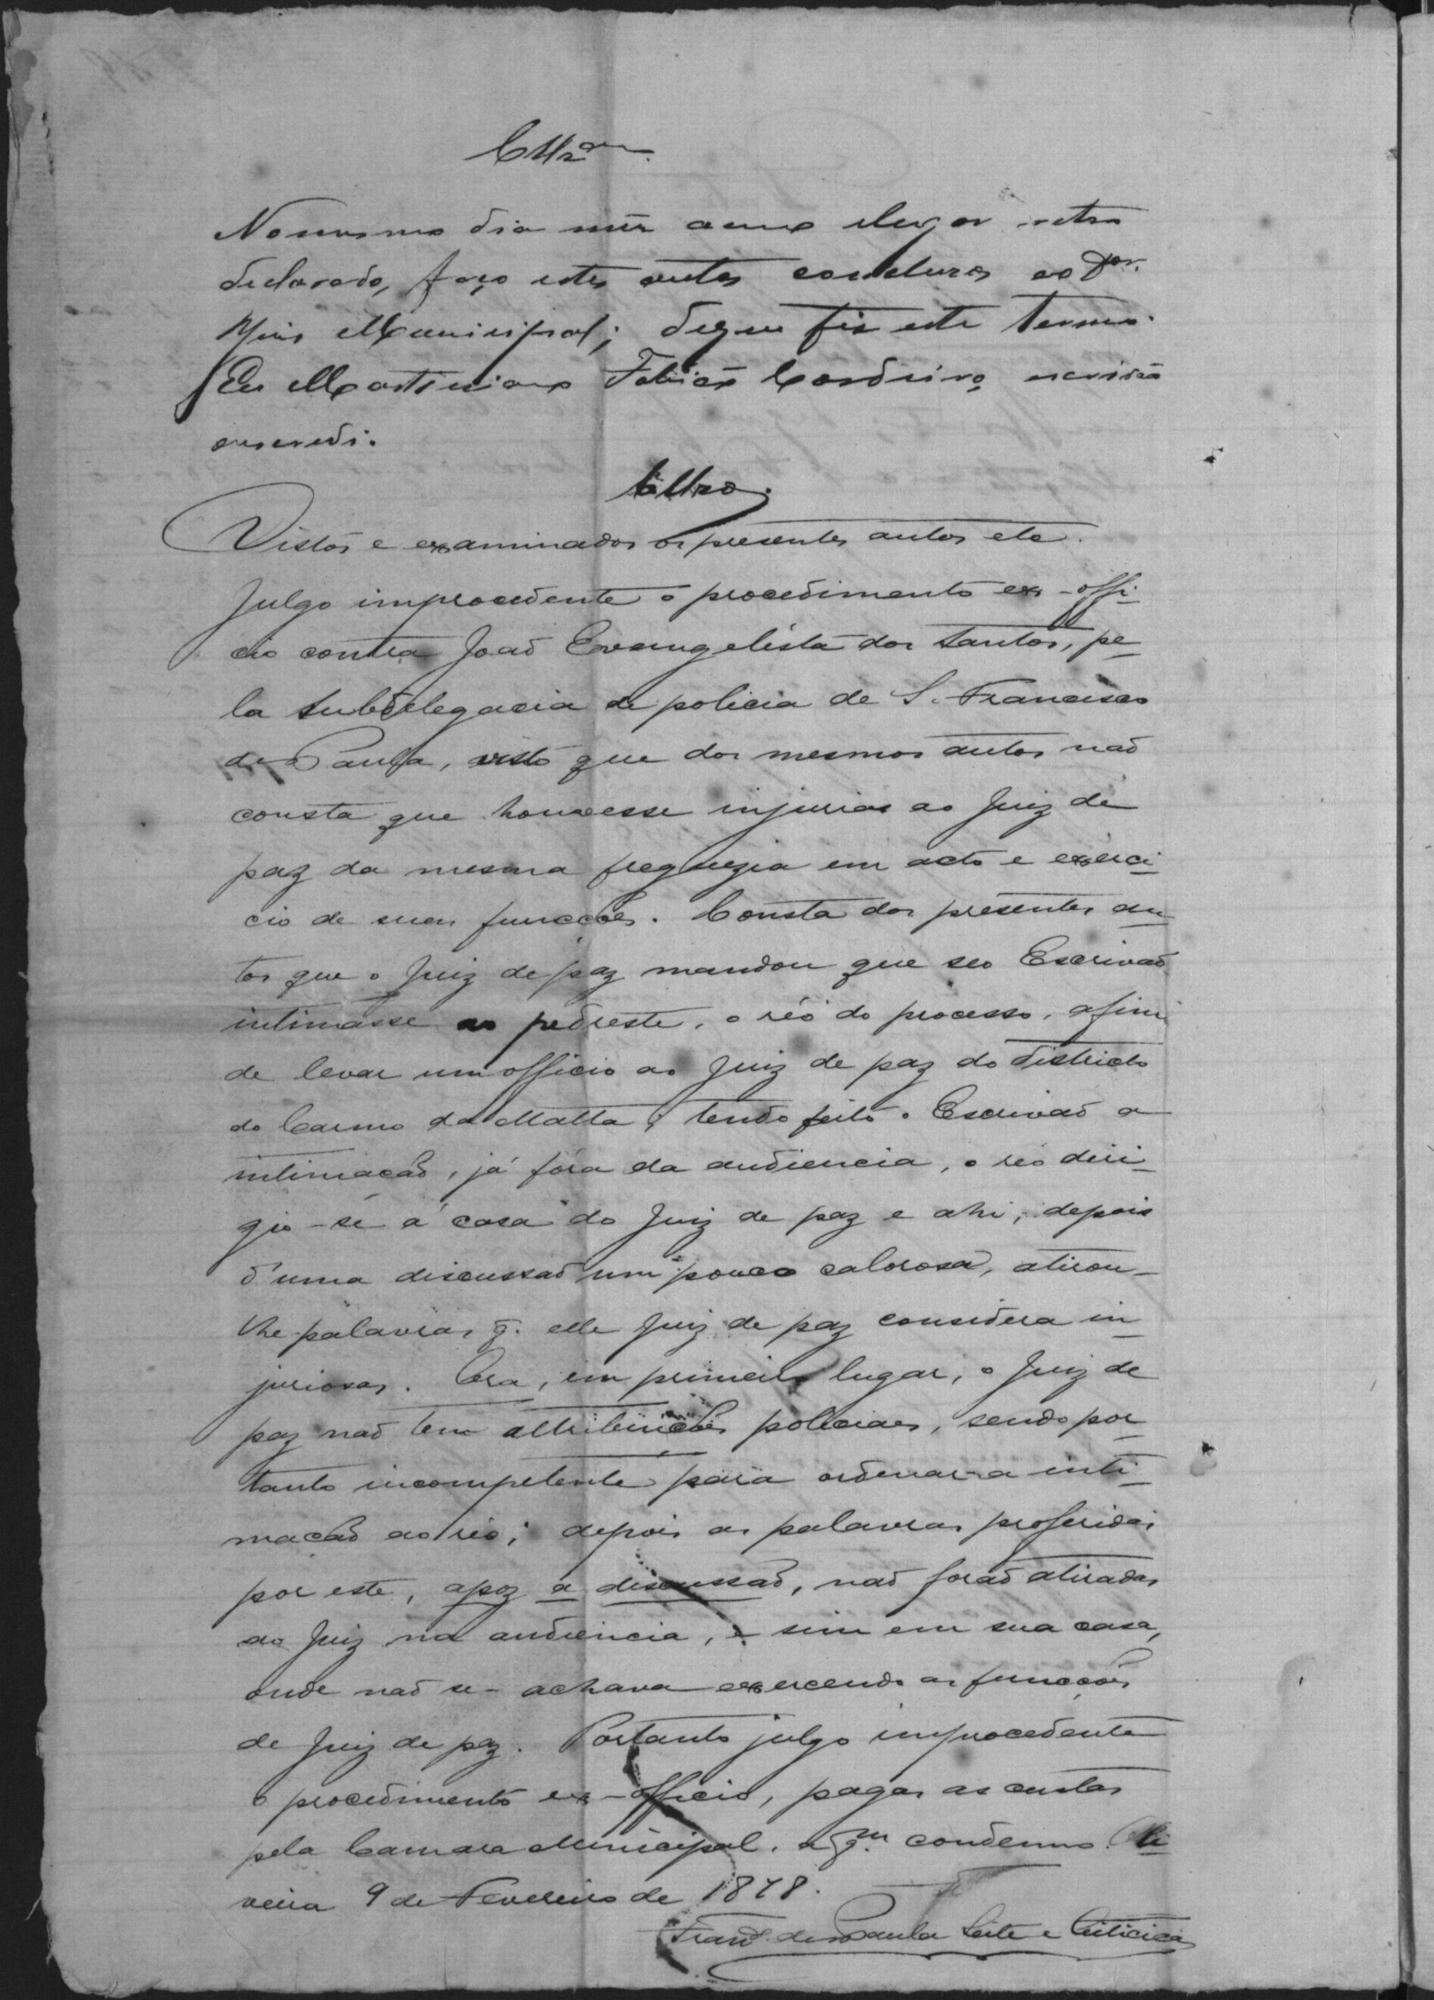 Cllzam
No mesmo dia mez anno elugar retro
declarado, faço estes autos conclusos ao Dor.
Juis Municipal; dequefis este termo.
Eu Martiniano Fabiaõ Cordeiro, escrivaõ
oescredi.
Cllzos.
Vistos e examinados os presentes autos etc.
Julgo improcedente o procedimento ex-offi-
cio contra Joaõ Evangelista dos Santos, pe-
la subdelegacia de policia de S. Francisco
de Paula, visto que dos mesmos autos naõ
consta que houvesse injurias ao Juiz de
paz da mesma freguezia em acto e exerci-
cio de suas funccões. Consta dos presentes au-
tos que o Juiz de paz mandou que seo Escrivaõ
intimasse ao pedreste, o réo do processo, afim
de levar um officio ao Juiz de paz do districto
do Carmo da Matta; tendo feito o Escrivaõ a
intimacaõ, já fóra da audiencia, o réo diri-
gio-se á casa do Juiz de paz e ahi, depois
d'uma discussaõ um pouco calorosa, atirou-
lhe palavras q. elle Juiz de paz considera in-
juriosas. Ora, em primeiro lugar, o Juiz de
paz naõ tem attribuicões policiaes, sendo por-
tanto incompetente para ordenar a inti-
macaõ ao réo; depois as palavras proferidas
por este, apoz a discussaõ, naõ foraõ atiradas
ao Juiz na audiencia, e sim em sua casa,
onde naõ se-achava exercendo as funccões
de Juiz de paz. Portanto julgo improcedente
o procedimento ex-officio, pagas as custas
pela Camara Municipal, a qm condemno. Oli-
veira 9 de Fevereiro de 1878.
Franco de Paula Leite e Oiticica